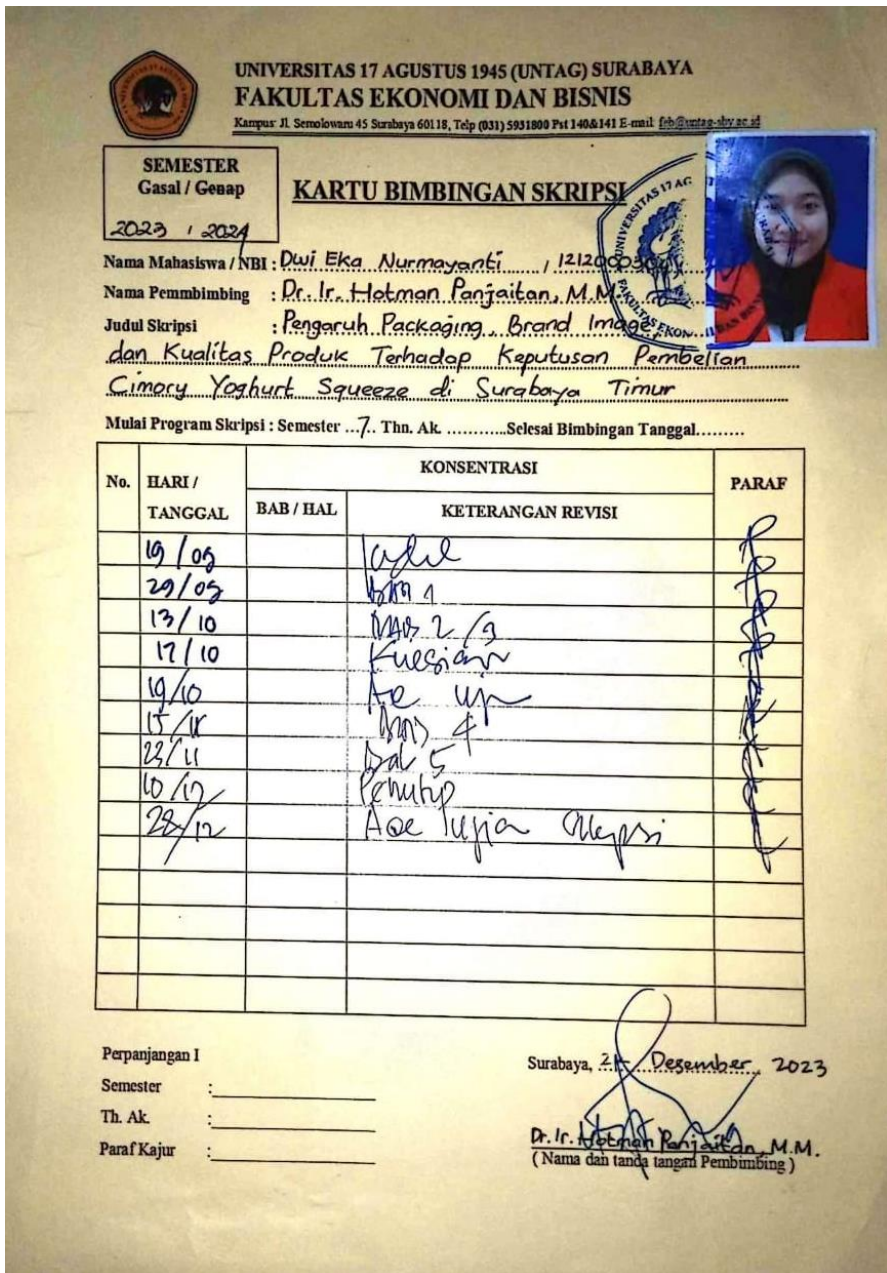 UNIVERSITAS 17 AGUSTUS 1945 (UNTAG) SURABAYA
FAKULTAS EKONOMI DAN BISNIS
Kampus: Jl. Semolowaru 45 Surabaya 60118, Telp (031) 5931800 Pst 140&141 E-mail: feb@untag-sby.ac.id
SEMESTER
Gasal / Genap
2023 / 2024
KARTU BIMBINGAN SKRIPSI
Nama Mahasiswa / NBI : Dwi Eka Nurmayanti /
Nama Pemmbimbing : Dr. Ir. Hotman Panjaitan, M.M.
Judul Skripsi : Pengaruh Packaging, Brand Image,
dan Kualitas Produk Terhadap Keputusan Pembelian
Cimory Yoghurt Squeeze di Surabaya Timur
Mulai Program Skripsi : Semester ...7.. Thn. Ak. ............Selesai Bimbingan Tanggal.........
No. HARI / TANGGAL KONSENTRASI PARAF
BAB / HAL KETERANGAN REVISI
19 / 09
29/09 1
13/ 10 2/3
17/10 Kuesioner
19/10
15/11 4
23/11 Bab 5
10/12 Penutup
28/12
Perpanjangan I
Semester :
Th. Ak. :
Paraf Kajur :
Surabaya, Desember 2023
Dr. Ir. Hotman Panjaitan, M.M.
( Nama dan tanda tangan Pembimbing )